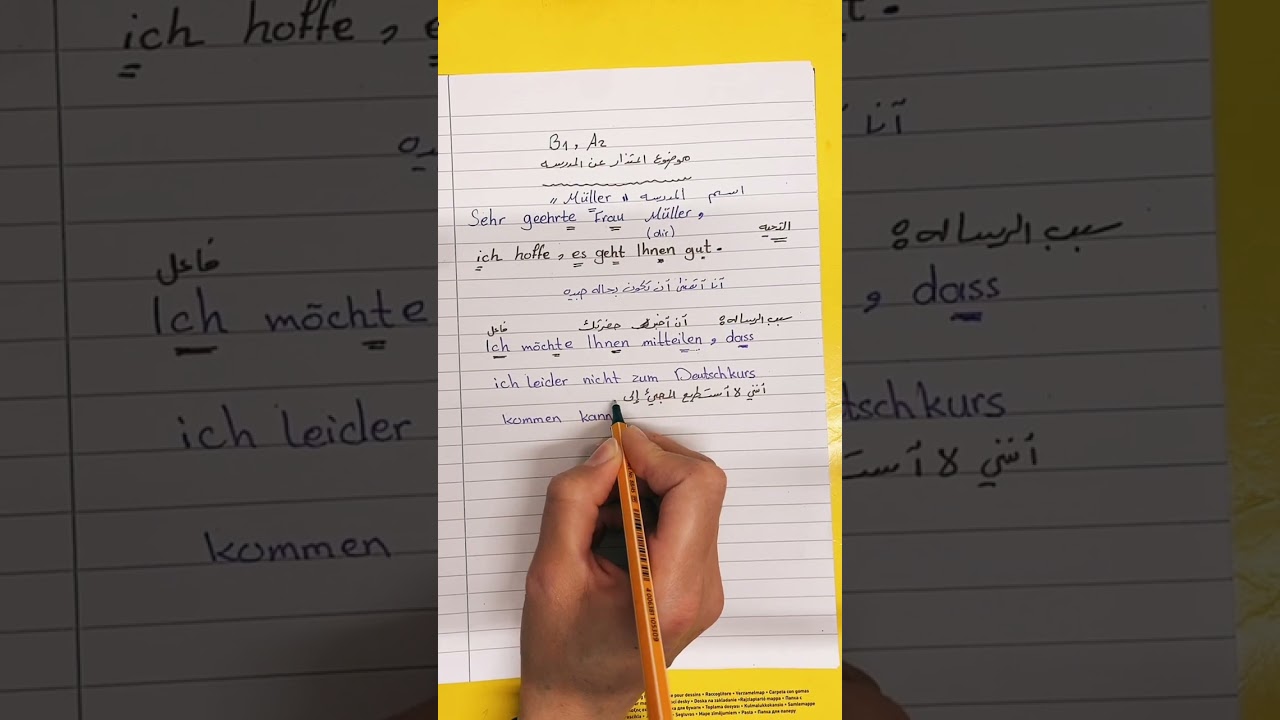 B1, A2
موضوع اعتذار عن المدرسه
اسم المدرسه "Müller"
Sehr geehrte Frau Müller,
(dir)
التحيه
ich hoffe, es geht Ihnen gut.
أنا أتمنى أن تكون بحاله جيده
سبب الرساله: أن أخبر حضرتك فاعل
Ich möchte Ihnen mitteilen, dass
ich leider nicht zum Deutschkurs
أنني لا أستطيع المجيئ إلى
kommen kann